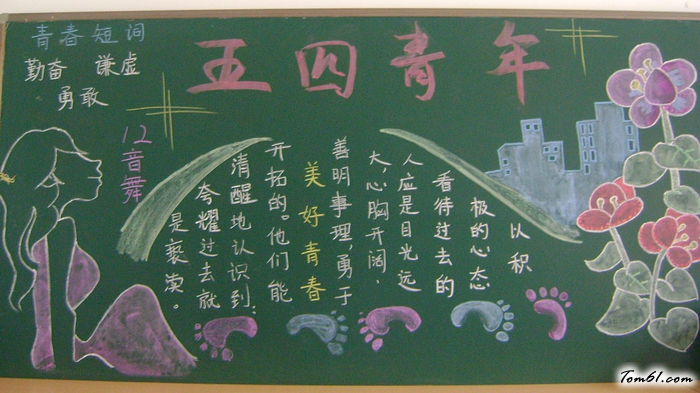 青春短词
勤奋 谦虚
勇敢
五四青年
12音舞
以积
极的心态
看待过去的
人应是目光远
大，心胸开阔，
善明事理，勇于
美好青春
开拓的。他们能
清醒地认识到：
夸耀过去就
是亵渎。
Tom61.com